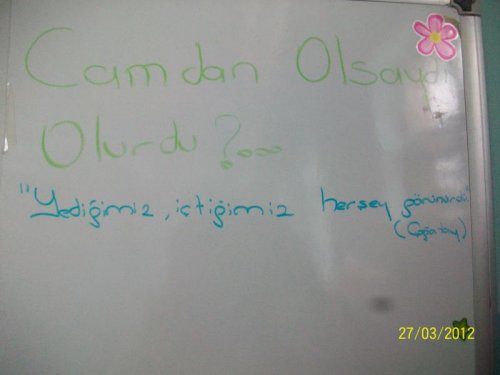 Camdan Olsaydı
Olurdu?...
"Yediğimiz, içtiğimiz herşey görünürdü"
(Çağatay)
27/03/2012